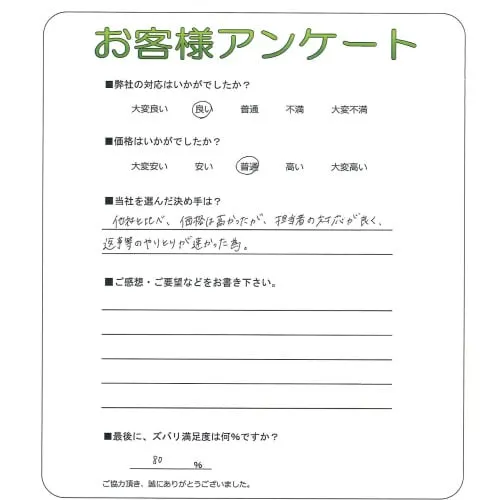 お客様アンケート
■弊社の対応はいかがでしたか？
大変良い 良い 普通 不満 大変不満
■価格はいかがでしたか？
大変安い 安い 普通 高い 大変高い
■当社を選んだ決め手は？
他社と比べ、価格は高かったが、担当者の対応が良く、
返事等のやりとりが速かった為。
■ご感想・ご要望などをお書き下さい。
■最後に、ズバリ満足度は何%ですか？
80 %
ご協力頂き、誠にありがとうございました。